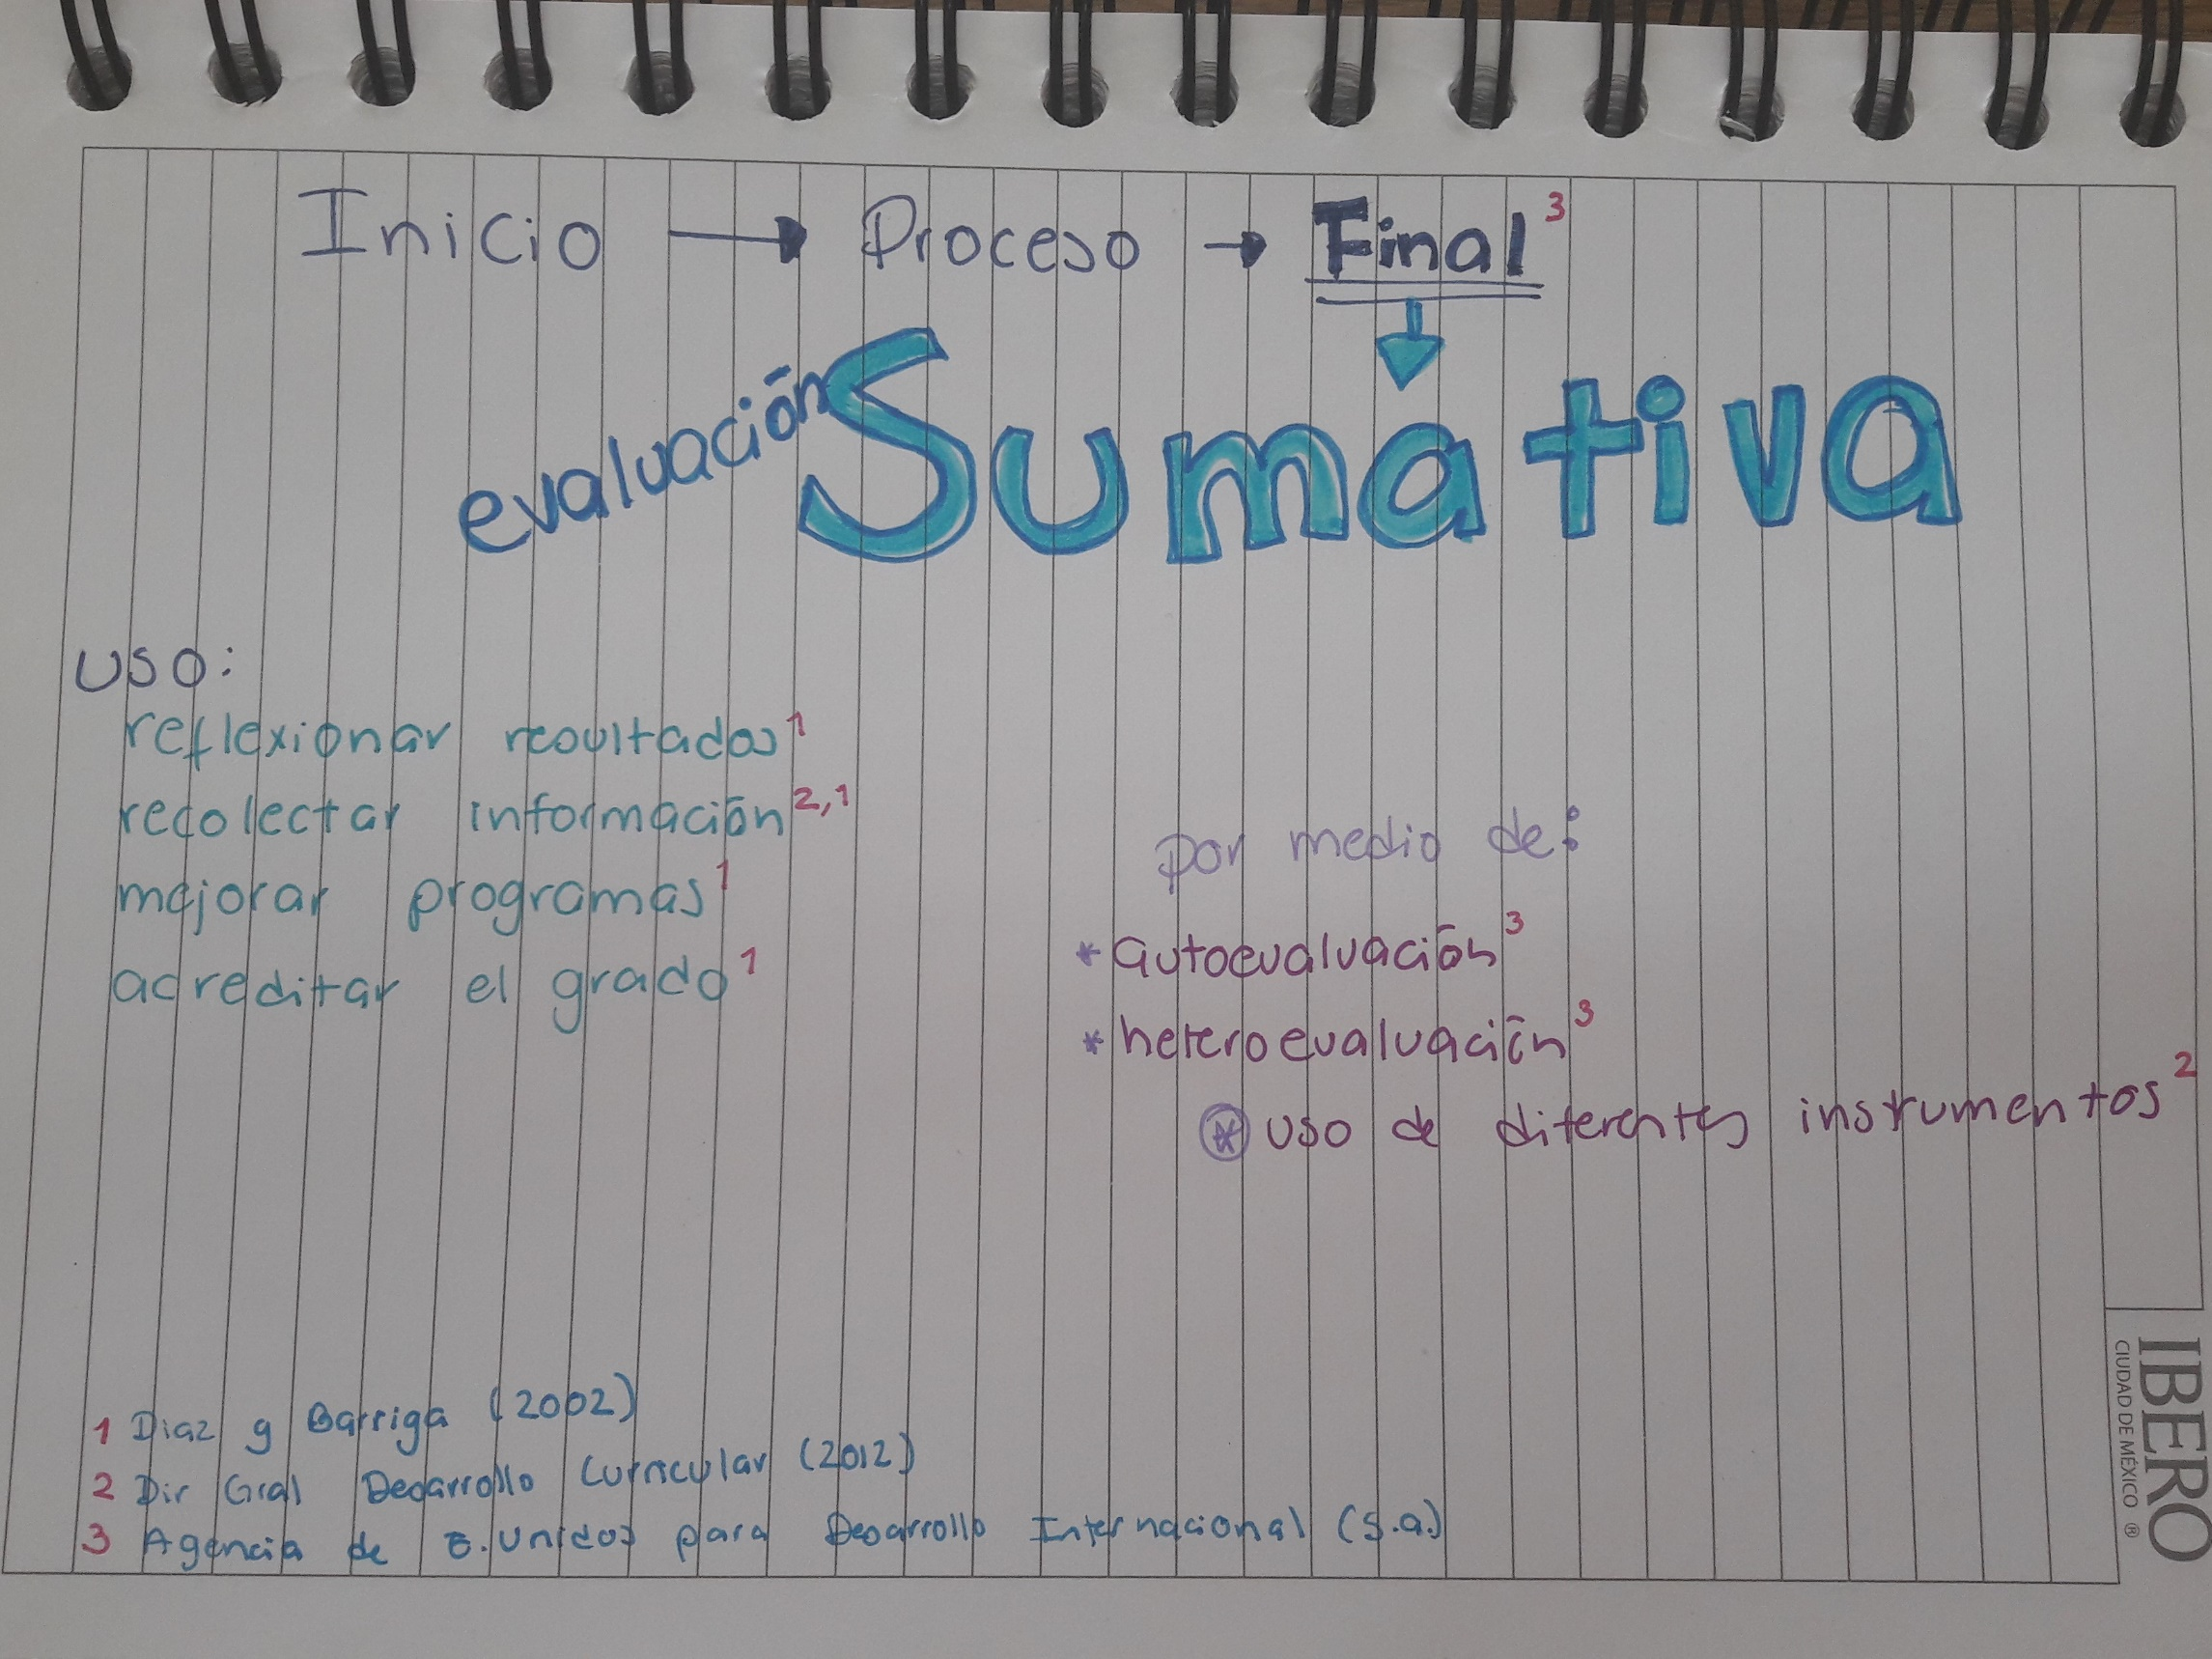 Inicio → Proceso → Final³
evaluación Sumativa
uso:
reflexionar resultados¹
recolectar información²,¹
mejorar programas¹
acreditar el grado¹
por medio de:
* autoevaluación³
* heteroevaluación³
* uso de diferentes instrumentos²
1 Diaz y Barriga (2002)
2 Dir Gral Desarrollo Curricular (2012)
3 Agencia de E. Unidos para Desarrollo Internacional (s.a.)
IBERO
CIUDAD DE MÉXICO ®